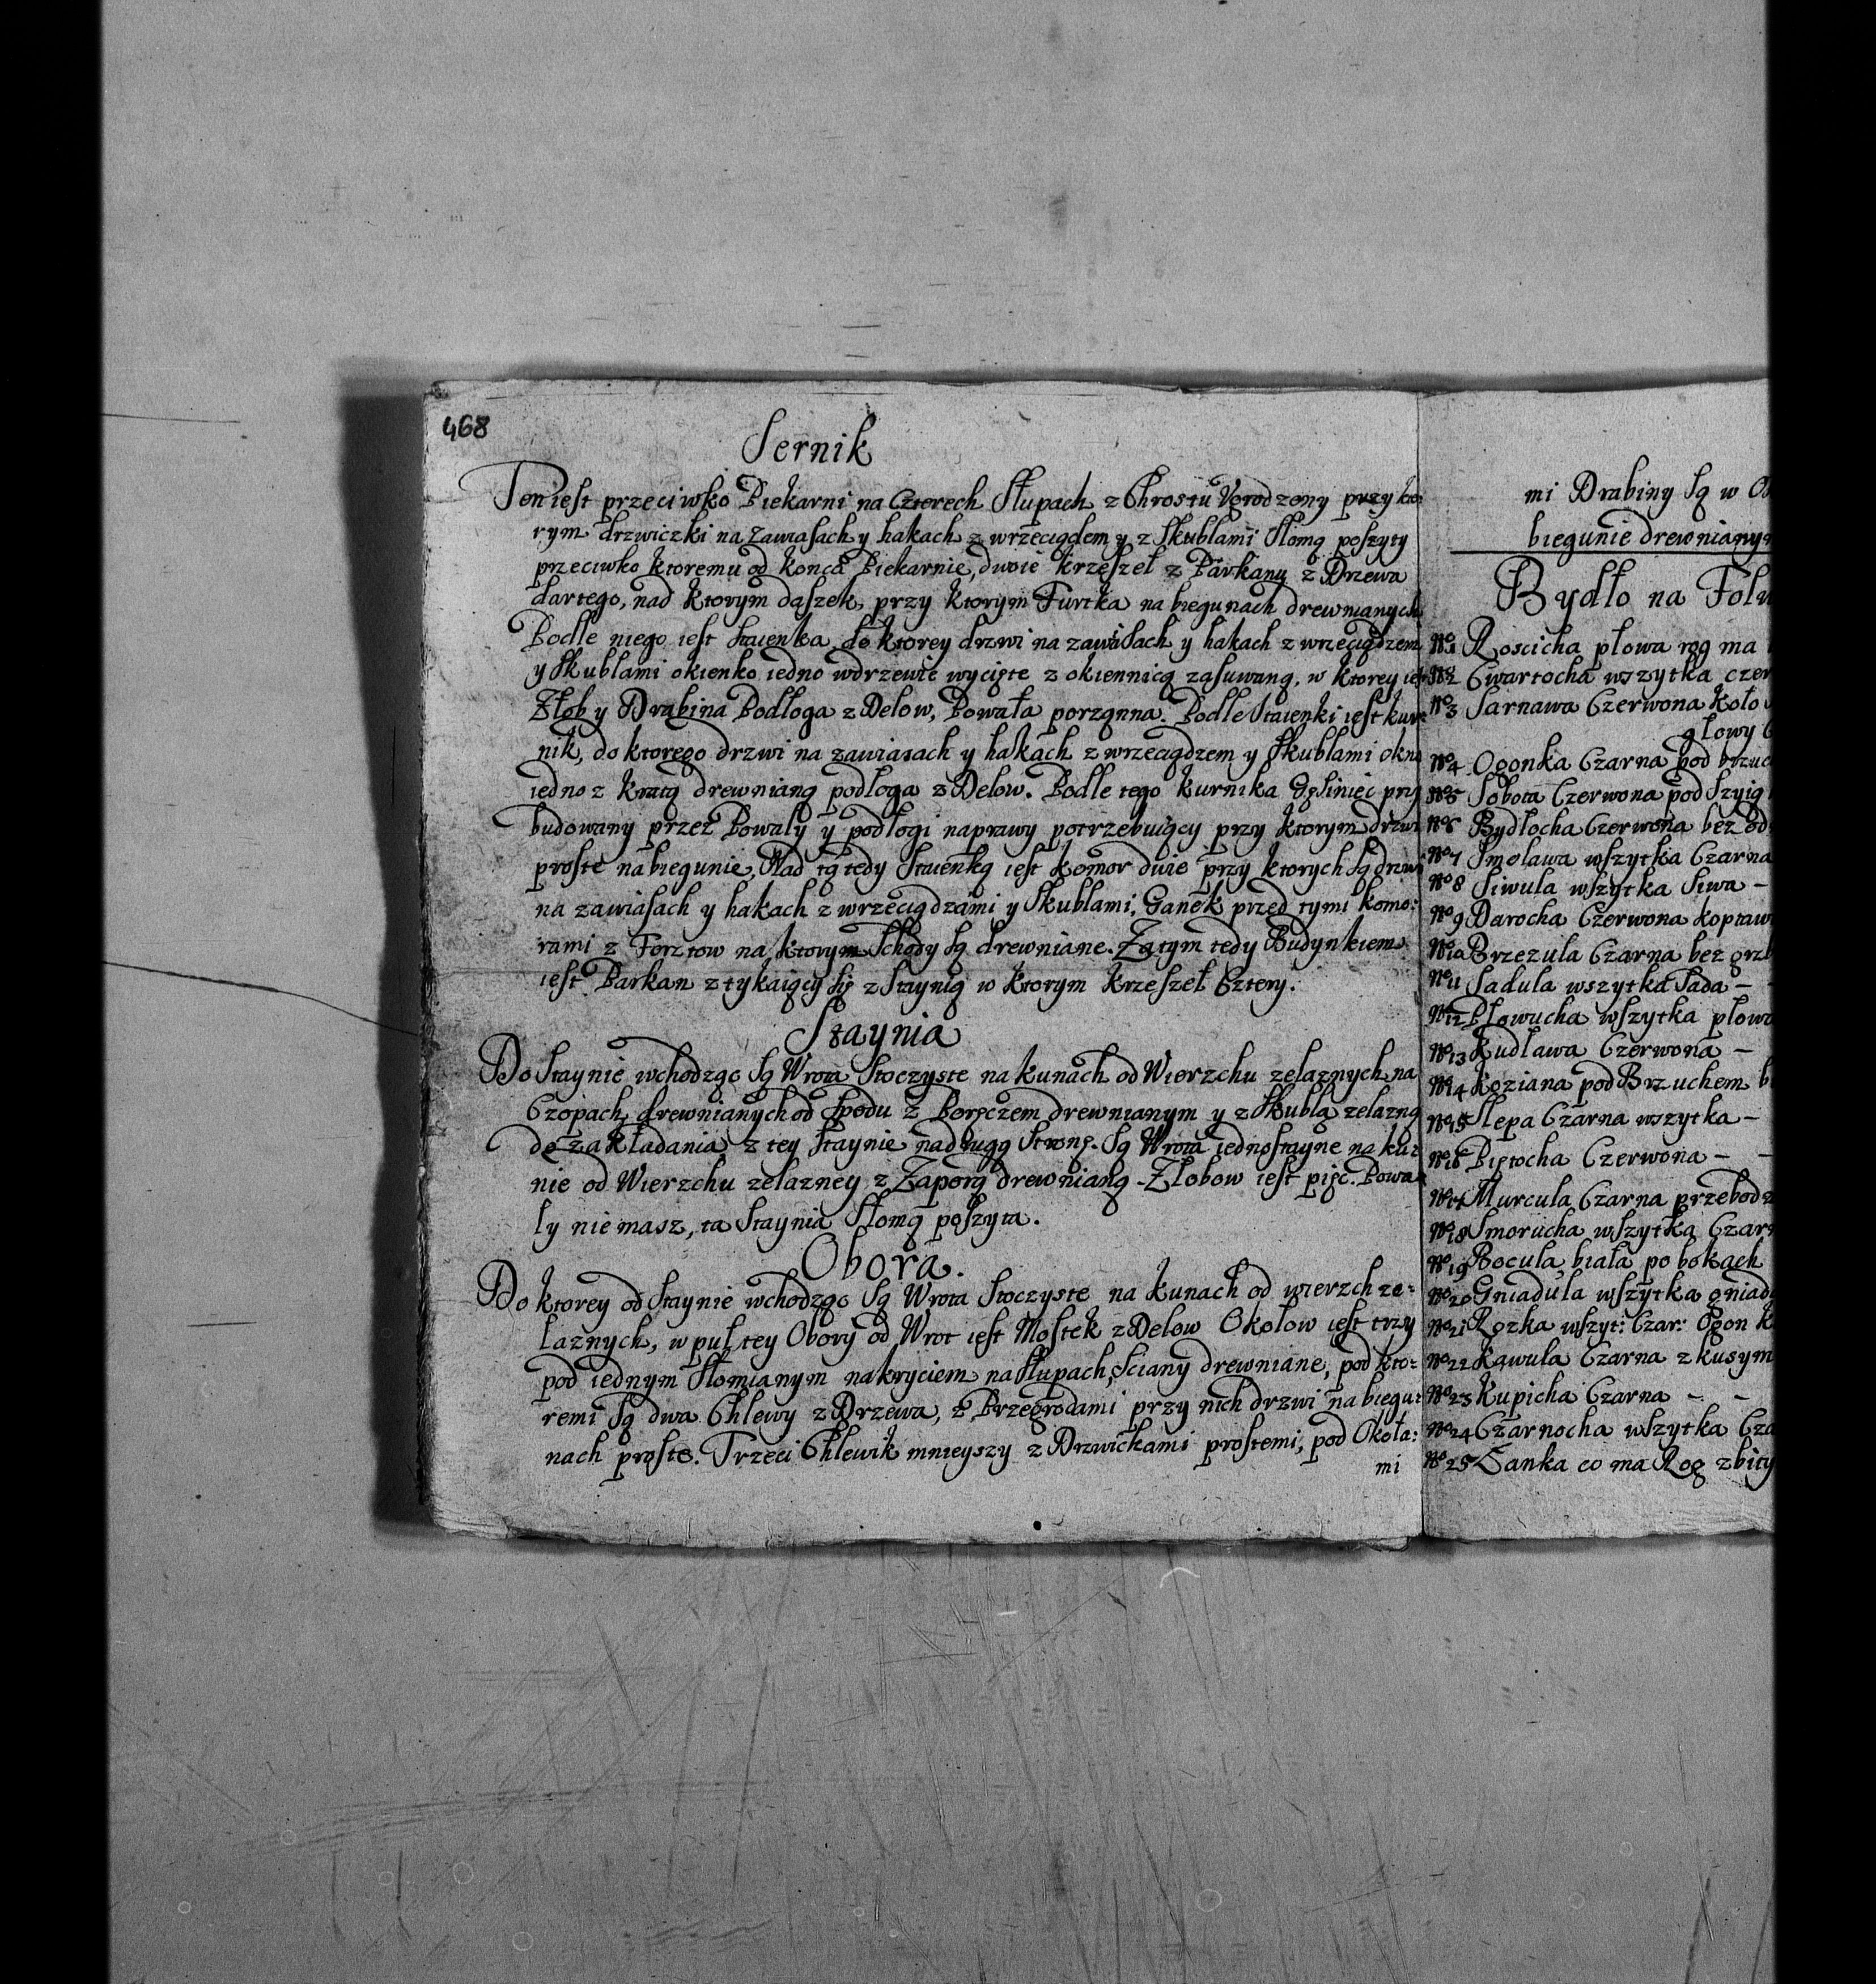 468
Sernik
Ten iest przeciwko Piekarni na Czterech Słupach z Chrostu Vgrodzony przy kto:
rym drzwiczki na Zawiasach y hakach z wrzeciądem y z Skublami Słomą poszyty
przeciwko ktoremu od konca Piekarnie, dwoie krzeszeł z Párkany z Drzewa
dartego, nad ktorym daszek, przy ktorym Furtka na biegunach drewnianych
Podle niego iest staienka, do ktorey drzwi na zawiasach y hakach z wrzeciądzem
y Skublami okienko iedno wdrzewie wycięte z okiennicą zasuwaną, w ktorey iest
Złob y Drabina Podłoga z Delow, Powała porządna. Podle Staienki iest kur:
nik, do ktorego drzwi na zawiasach y hakach z wrzeciądzem y Skublami okno
iedno z kratą drewnianą podłoga z Delow. Podle tego kurnika Gęsiniec przy
budowany przez Powały y podłogi naprawy potrzebuiący przy ktorym drzwi
proste na biegunie, Nad tą tedy Staienką iest komor dwie przy ktorych są drzwi
na zawiasach y hakach z wrzeciądzami y Skublami, Ganek przed tymi komo:
rami z Forsztow na ktorym Schody są drewniane. Za tym tedy Budynkiem
iest Parkan z tykaiący się z Staynią w ktorym krzeszeł Cztery.
Staynia
Do Staynie wchodząc są Wrota Stoczyste na kunach od Wierzchu zelaznych na
Czopach drewnianych od Spodu z Poręczem drewnianym y z Skublą zelazną
do zakładania, z tey staynie nadrugą Stronę. Są Wrota iednostayne na ku:
nie od Wierzchu zelazney z Zaporą drewnianą. Złobow iest pięc. Powa:
ły nie masz, ta Staynia Słomą poszyta.
Obora.
Do ktorey od Staynie wchodząc są Wrota Stoczyste na kunach od wierzch ze:
laznych, w pul tey Obory od Wrot iest Mostek z Delow Okołow iest trzy
pod iednym Słomianym nakryciem na Słupach, Sciany drewniane, pod kto:
remi są dwa Chlewy z Drzewa, z Przegrodami przy nich drzwi na biegu:
nach proste. Trzeci Chlewik mnieyszy z Drzwickami prostemi, pod Okoła:
mi
mi Drabiny są w
biegunie drewnianym
Bydło na
No1 Roscicha płowa rog ma
No2 Cwartocha wszytka
No3 Sarnawa Czerwona koło
głowy
No4 Ogonka Czarna pod
No5 Sobota Czerwona pod Szyią
No6 Bydłocha Czerwona bez
No7 Smolawa wszytka Czarna
No8 Siwula wszytka Siwa –
No9 Darocha Czerwona
No10 Brzezula Czarna bez
No11 Sadula wszytka Sada –
No12 Płowucha wszytka
No13 Rudława Czerwona –
No14 Koziana pod Brzuchem
No15 Slepa Czarna wszytka –
No16 Piętocha Czerwona – –
No17 Murcula Czarna
No18 Smorucha wszytka
No19 Bocula biała po bokach
No20 Gniadula wszytka
No21 Rozka wszyt: Czar: Ogon
No22 Kawula Czarna z kusym
No23 Kupicha Czarna – –
No24 Czarnocha wszytka
No25 Sanka co ma Rog